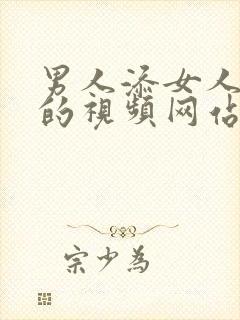 男人添女人
的視頻网佔
宗少為